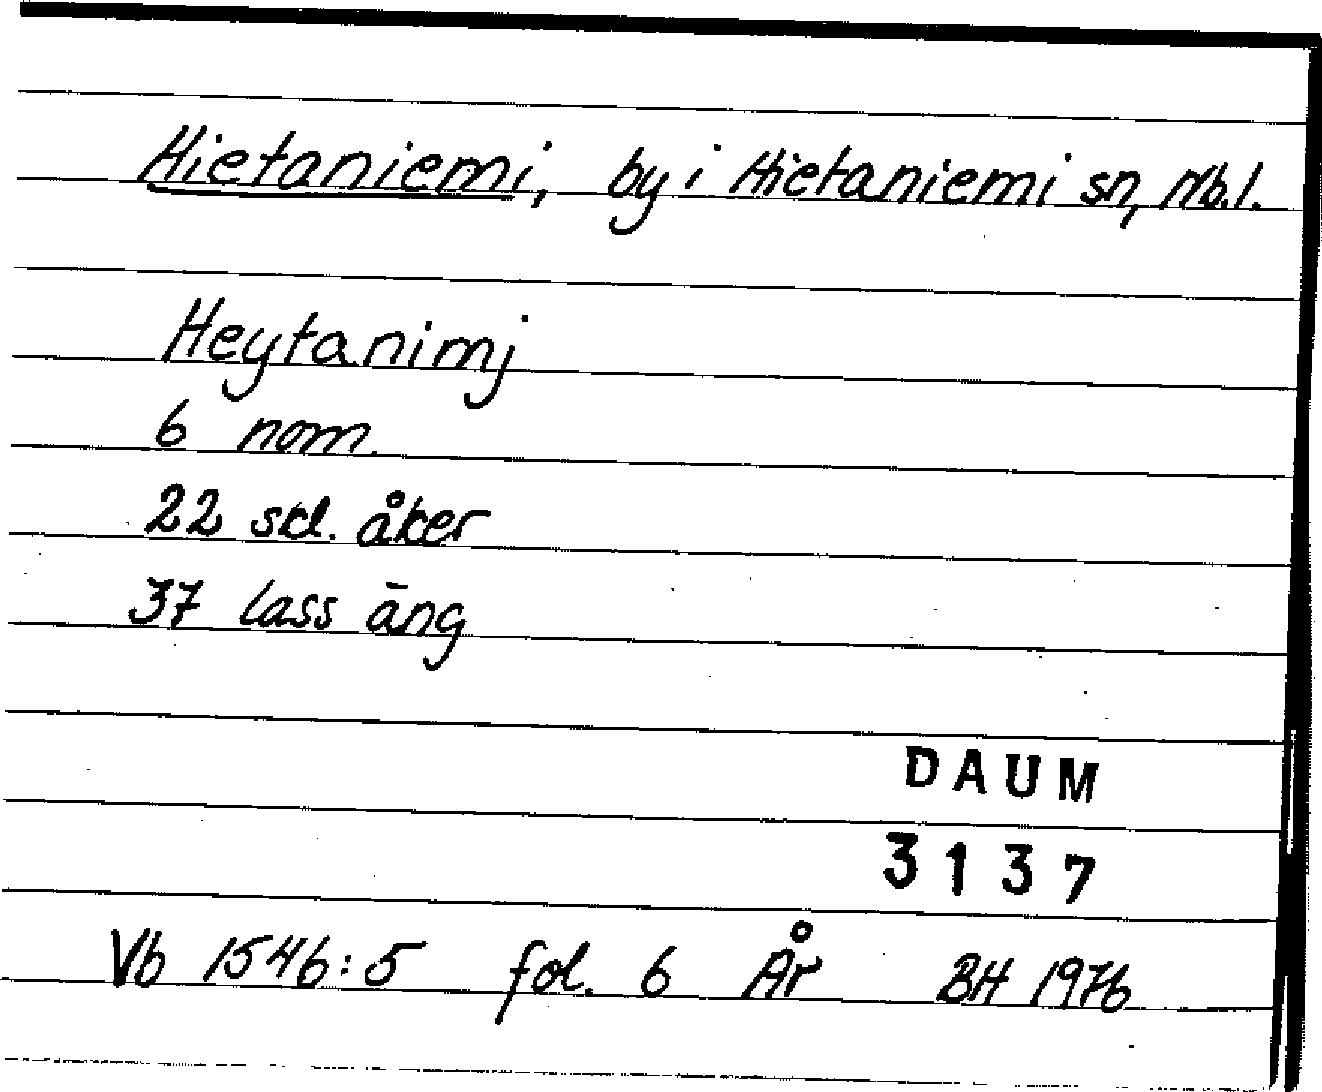 Hietaniemi, by i Hietaniemi sn, Nb.l.
Heytanimj
6 nom.
22 skl. åker
37 lass äng
DAUM
3137
Vb 1546:5 fol. 6 År BH 1976